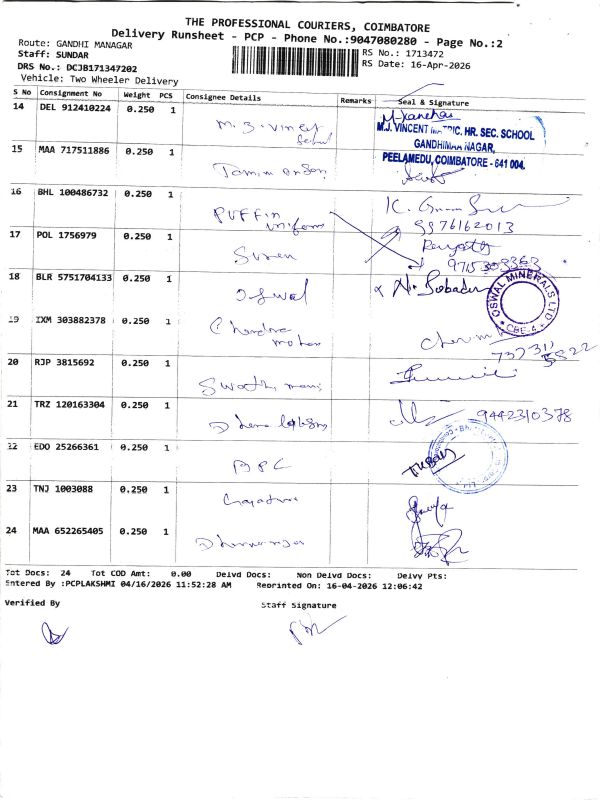 THE PROFESSIONAL COURIERS, COIMBATORE
Delivery Runsheet - PCP - Phone No.:9047080280 - Page No.:2
Route: GANDHI MANAGAR
Staff: SUNDAR
DRS No.: DCJB171347202
Vehicle: Two Wheeler Delivery
RS No.: 1713472
RS Date: 16-Apr-2026
S No Consignment No Weight PCS Consignee Details Remarks Seal & Signature
14 DEL 912410224 0.250 1
M.J. VINCENT MATRIC. HR. SEC. SCHOOL
GANDHIMAA NAGAR,
PEELAMEDU, COIMBATORE - 641 004.
15 MAA 717511886 0.250 1
16 BHL 100486732 0.250 1 PUFFin uniforms
9976162013
17 POL 1756979 0.250 1 Suren
9715303363
18 BLR 5751704133 0.250 1 Oswal
OSWAL MINERALS LTD
CBE-4
19 IXM 303882378 0.250 1 Chandra mohan
20 RJP 3815692 0.250 1
21 TRZ 120163304 0.250 1
9442310378
22 EDO 25266361 0.250 1 BPC
23 TNJ 1003088 0.250 1
24 MAA 652265405 0.250 1
Tot Docs: 24 Tot COD Amt: 0.00 Delvd Docs: Non Delvd Docs: Delvy Pts:
Entered By :PCPLAKSHMI 04/16/2026 11:52:28 AM Reprinted On: 16-04-2026 12:06:42
Verified By Staff Signature